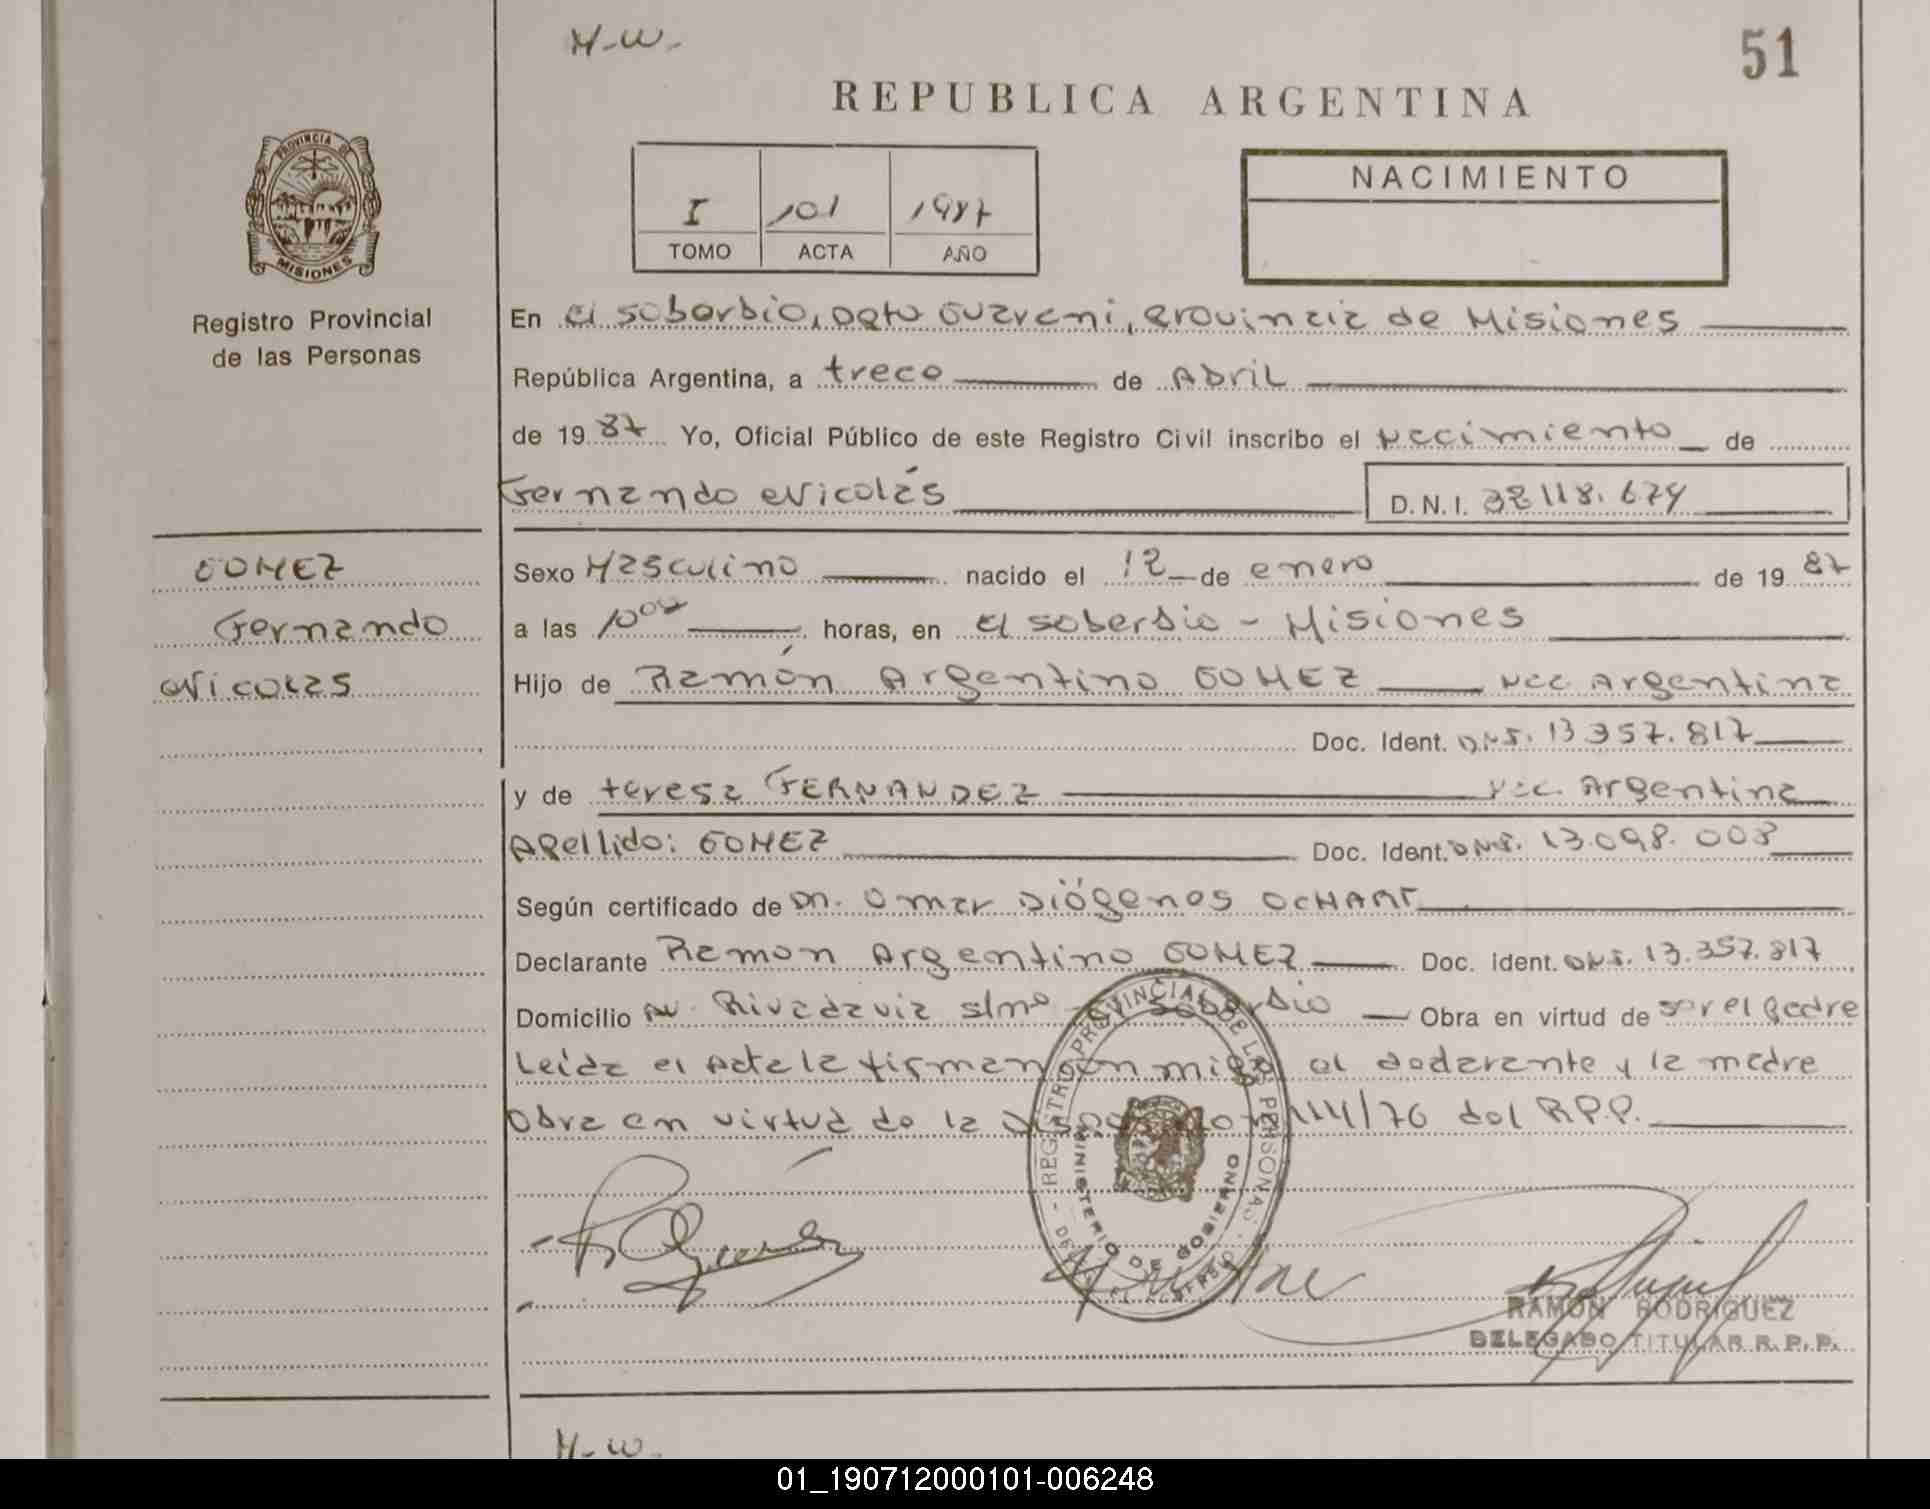 H-W-
51
REPUBLICA ARGENTINA
PROVINCIA DE
MISIONES
Registro Provincial
de las Personas
I 101 1987
TOMO ACTA AÑO
NACIMIENTO
En El soberbio, Dpto Guarani, Provincia de Misiones
República Argentina, a trece de Abril
de 1987 Yo, Oficial Público de este Registro Civil inscribo el Nacimiento de
Fernando Nicolás D.N.I. 32118.674
GOMEZ
Fernando
Nicolas
Sexo Masculino nacido el 12 de enero de 1987
a las 10⁰⁰ horas, en El soberbio - Misiones
Hijo de Ramón Argentino GOMEZ Nac. Argentina
Doc. Ident. DNI. 13 357.817
y de teresa FERNANDEZ Nac. Argentina
Apellido: GOMEZ Doc. Ident. DNI. 13.098.008
Según certificado de Dn. Omar Diógenes
Declarante Ramon Argentino GOMEZ Doc. ident. DNI. 13.357.817
Domicilio Av. Rivadavia s/nº El Soberbio Obra en virtud de ser el padre
Leída el Acta la firman conmigo el declarante y la madre
Obra en virtud de la 114/76 del R.P.P.
REGISTRO PROVINCIAL DE LAS PERSONAS
MINISTERIO DE GOBIERNO
RAMON RODRIGUEZ
DELEGADO TITULAR R.P.P.
H-W-
01_190712000101-006248